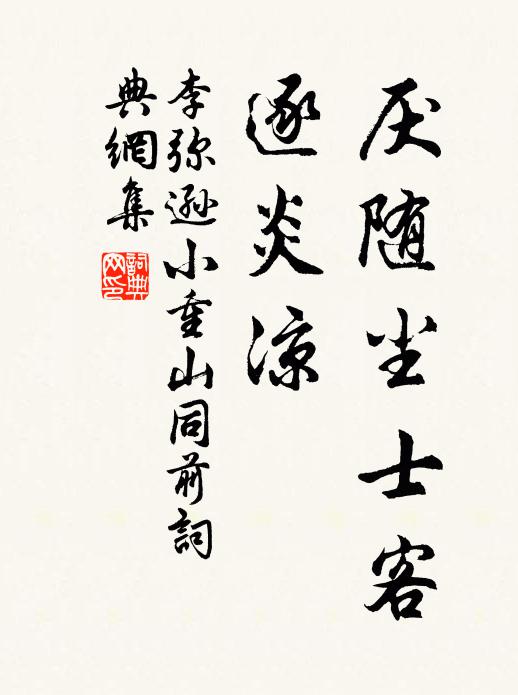 厌随尘士客
逐炎凉
李弥逊小重山同前詞
典網集
詞典网印